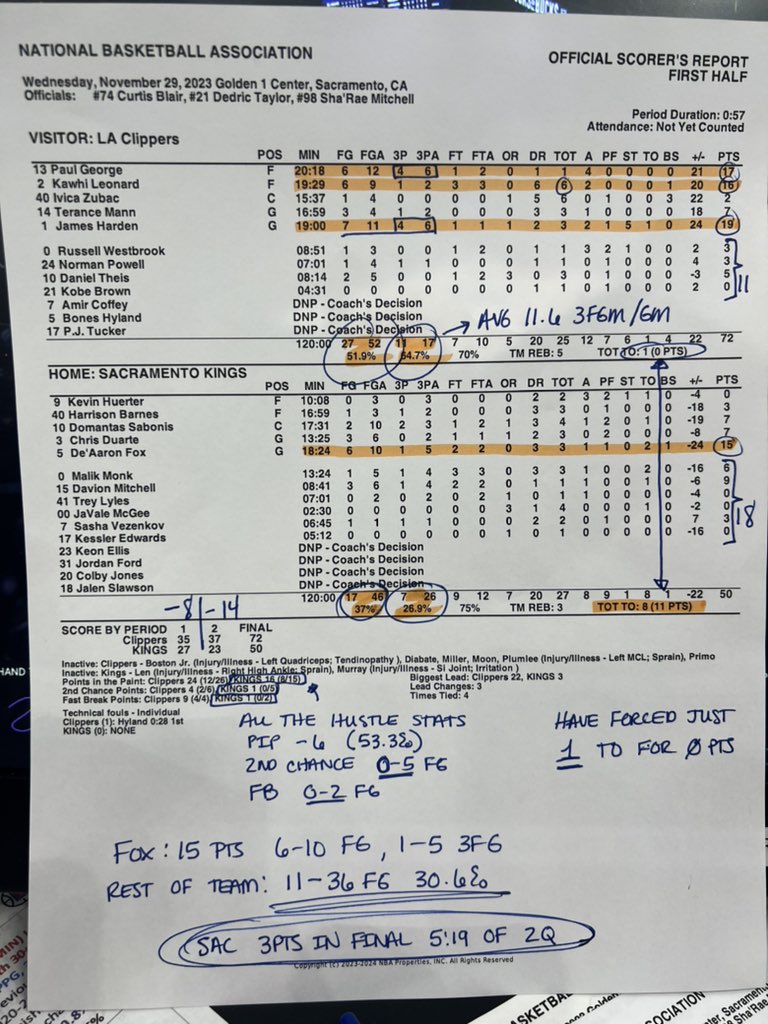 NATIONAL BASKETBALL ASSOCIATION
OFFICIAL SCORER'S REPORT
FIRST HALF
Wednesday, November 29, 2023 Golden 1 Center, Sacramento, CA
Officials: #74 Curtis Blair, #21 Dedric Taylor, #98 Sha'Rae Mitchell
Period Duration: 0:57
Attendance: Not Yet Counted
VISITOR: LA Clippers
POS MIN FG FGA 3P 3PA FT FTA OR DR TOT A PF ST TO BS +/- PTS
13 Paul George F 20:18 6 12 4 6 1 2 0 1 1 4 0 0 0 0 21 17
2 Kawhi Leonard F 19:29 6 9 1 2 3 3 0 6 6 0 0 0 0 1 20 16
40 Ivica Zubac C 15:37 1 4 0 0 0 0 1 5 6 0 1 0 0 3 22 2
14 Terance Mann G 16:59 3 4 1 2 0 0 0 3 3 0 1 0 0 0 18 7
1 James Harden G 19:00 7 11 4 6 1 1 1 2 3 2 1 5 1 0 24 19
0 Russell Westbrook 08:51 1 3 0 0 1 2 0 1 1 3 2 1 0 0 2 3
24 Norman Powell 07:01 1 4 1 1 0 0 0 1 1 2 1 0 0 0 4 3
10 Daniel Theis 08:14 2 5 0 0 1 2 3 0 3 1 0 0 0 0 -3 5
21 Kobe Brown 04:31 0 0 0 0 0 0 0 1 1 0 1 0 0 0 2 0
11
7 Amir Coffey DNP - Coach's Decision
5 Bones Hyland DNP - Coach's Decision
17 P.J. Tucker DNP - Coach's Decision
AVG 11.6 3FGM/GM
120:00 27 52 11 17 7 10 5 20 25 12 7 6 1 4 22 72
51.9% 64.7% 70% TM REB: 5 TOT TO: 1 (0 PTS)
HOME: SACRAMENTO KINGS
POS MIN FG FGA 3P 3PA FT FTA OR DR TOT A PF ST TO BS +/- PTS
9 Kevin Huerter F 10:08 0 3 0 3 0 0 0 2 2 3 2 1 1 0 -4 0
40 Harrison Barnes F 16:59 1 3 1 2 0 0 0 3 3 0 1 0 0 0 -18 3
10 Domantas Sabonis C 17:31 2 10 2 3 1 2 1 3 4 1 2 0 1 0 -19 7
3 Chris Duarte G 13:25 3 6 0 2 1 1 1 2 3 0 2 0 0 0 -8 7
5 De'Aaron Fox G 18:24 6 10 1 5 2 2 0 3 3 1 1 0 2 1 -24 15
0 Malik Monk 13:24 1 5 1 4 3 3 0 3 3 1 0 0 2 0 -16 6
15 Davion Mitchell 08:41 3 6 1 4 2 2 0 1 1 1 0 0 1 0 -6 9
41 Trey Lyles 07:01 0 2 0 2 0 0 1 0 1 1 0 0 0 0 -4 0
00 JaVale McGee 02:30 0 0 0 0 0 0 3 1 4 0 0 0 1 0 -2 0
7 Sasha Vezenkov 06:45 1 1 1 1 0 0 0 2 2 0 1 0 0 0 7 3
17 Kessler Edwards 05:12 0 0 0 0 0 0 1 0 1 0 0 0 0 0 -16 0
18
23 Keon Ellis DNP - Coach's Decision
31 Jordan Ford DNP - Coach's Decision
20 Colby Jones DNP - Coach's Decision
18 Jalen Slawson DNP - Coach's Decision
120:00 17 46 7 26 9 12 7 20 27 8 9 1 8 1 -22 50
37% 26.9% 75% TM REB: 3 TOT TO: 8 (11 PTS)
-8 -14
SCORE BY PERIOD 1 2 FINAL
Clippers 35 37 72
KINGS 27 23 50
Inactive: Clippers - Boston Jr. (Injury/Illness - Left Quadriceps; Tendinopathy ), Diabate, Miller, Moon, Plumlee (Injury/Illness - Left MCL; Sprain), Primo
Inactive: Kings - Len (Injury/Illness - Right High Ankle; Sprain), Murray (Injury/Illness - SI Joint; Irritation )
Points in the Paint: Clippers 24 (12/26) KINGS 16 (8/15) Biggest Lead: Clippers 22, KINGS 3
2nd Chance Points: Clippers 4 (2/6) KINGS 1 (0/5) Lead Changes: 3
Fast Break Points: Clippers 9 (4/4) KINGS 1 (0/2) Times Tied: 4
Technical fouls - Individual
Clippers (1): Hyland 0:28 1st
KINGS (0): NONE
ALL THE HUSTLE STATS
PIP -6 (53.3%)
2ND CHANCE 0-5 FG
FB 0-2 FG
HAVE FORCED JUST
1 TO FOR 0 PTS
FOX: 15 PTS 6-10 FG, 1-5 3FG
REST OF TEAM: 11-36 FG 30.6%
SAC 3PTS IN FINAL 5:19 OF 2Q
Copyright (c) 2023-2024 NBA Properties, INC. All Rights Reserved